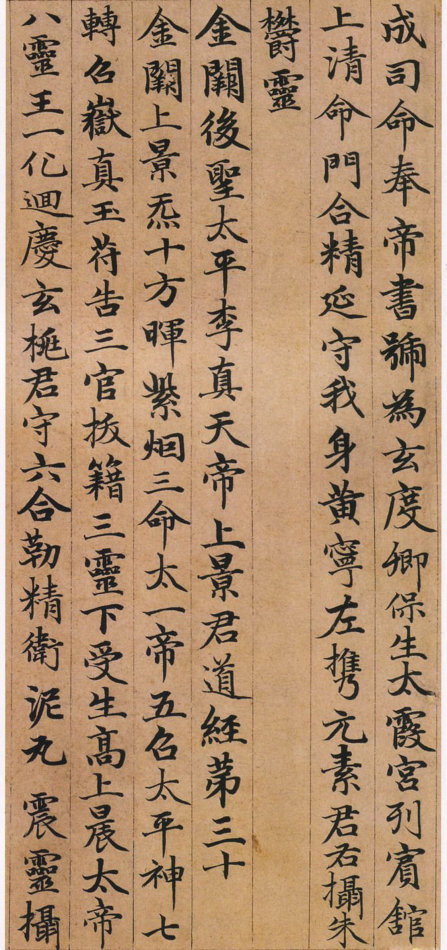 成司命奉帝書號為玄度卿保生太霞宮列賓舘
上清命門合精延守我身黃寧左攜元素君右攝朱
欝靈
金闕後聖太平李真天帝上景君道經苐三十
金闕上景炁十方暉紫烟三命太一帝五召太平神七
轉召嶽真王苻告三官抜籍三靈下受生髙上晨太帝
八靈王一化迴慶玄㮈君守六合勒精衛泥丸震靈攝